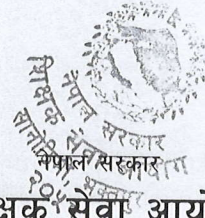 नेपाल सरकार
शिक्षक सेवा आयोग
सानोठिमी, भक्तपुर
नेपाल सरकार
क्षक सेवा आयो